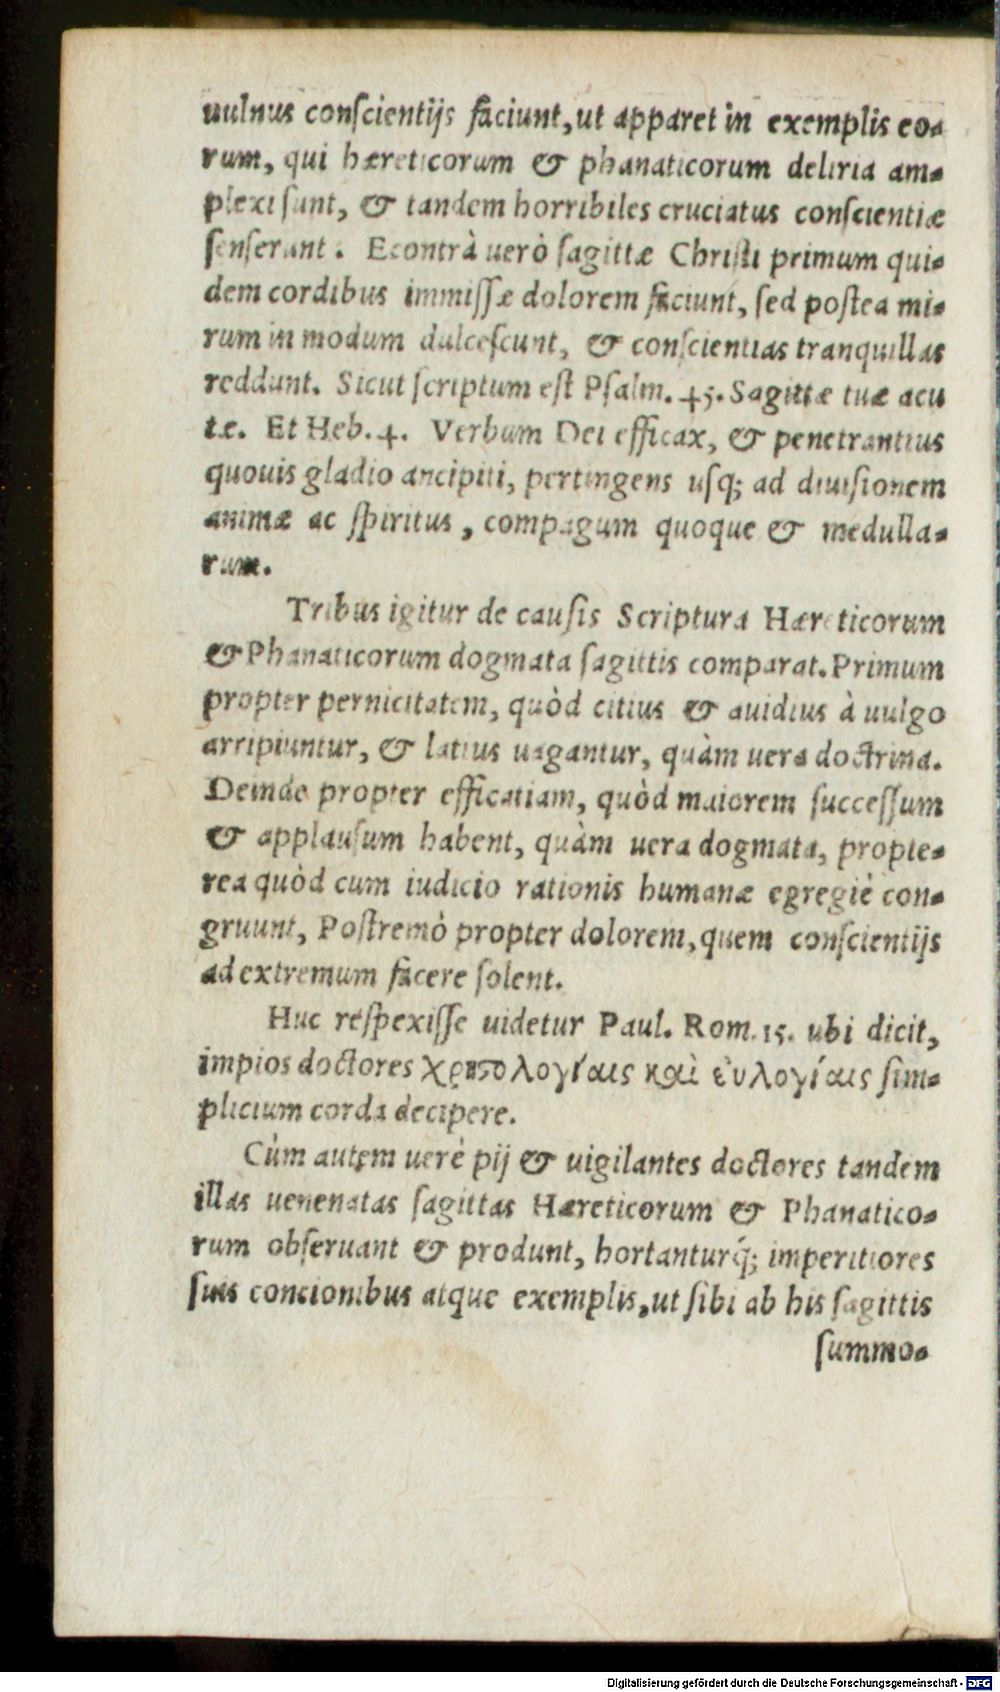 uulnus conſcientijs faciunt, ut apparet in exemplis eo-
rum, qui hæreticorum & phanaticorum deliria am-
plexi ſunt, & tandem horribiles cruciatus conſcientiæ
ſenſerunt. Econtrà uerò ſagittæ Chriſti primum qui-
dem cordibus immiſſæ dolorem faciunt, ſed poſtea mi-
rum in modum dulceſcunt, & conſcientias tranquillas
reddunt. Sicut ſcriptum eſt Pſalm. 45. Sagittæ tuæ acu
tæ. Et Heb. 4. Verbum Dei efficax, & penetrantius
quouis gladio ancipiti, pertingens uſq; ad diuiſionem
animæ ac ſpiritus, compagum quoque & medulla-
rum.
Tribus igitur de cauſis Scriptura Hæreticorum
& Phanaticorum dogmata ſagittis comparat. Primum
propter pernicitatem, quòd citius & auidius à uulgo
arripiuntur, & latius uagantur, quàm uera doctrina.
Deinde propter efficatiam, quòd maiorem ſucceſſum
& applauſum habent, quàm uera dogmata, propte-
rea quòd cum iudicio rationis humanæ egregiè con-
gruunt, Poſtremò propter dolorem, quem conſcientijs
ad extremum facere ſolent.
Huc reſpexiſſe uidetur Paul. Rom. 15. ubi dicit,
impios doctores χρηστολογίαις καὶ ἐυλογίαις ſim-
plicium corda decipere.
Cùm autem uerè pij & uigilantes doctores tandem
illas uenenatas ſagittas Hæreticorum & Phanatico-
rum obſeruant & produnt, hortanturq́; imperitiores
ſuis concionibus atque exemplis, ut ſibi ab his ſagittis
ſummo-
Digitalisierung gefördert durch die Deutsche Forschungsgemeinschaft - DFG